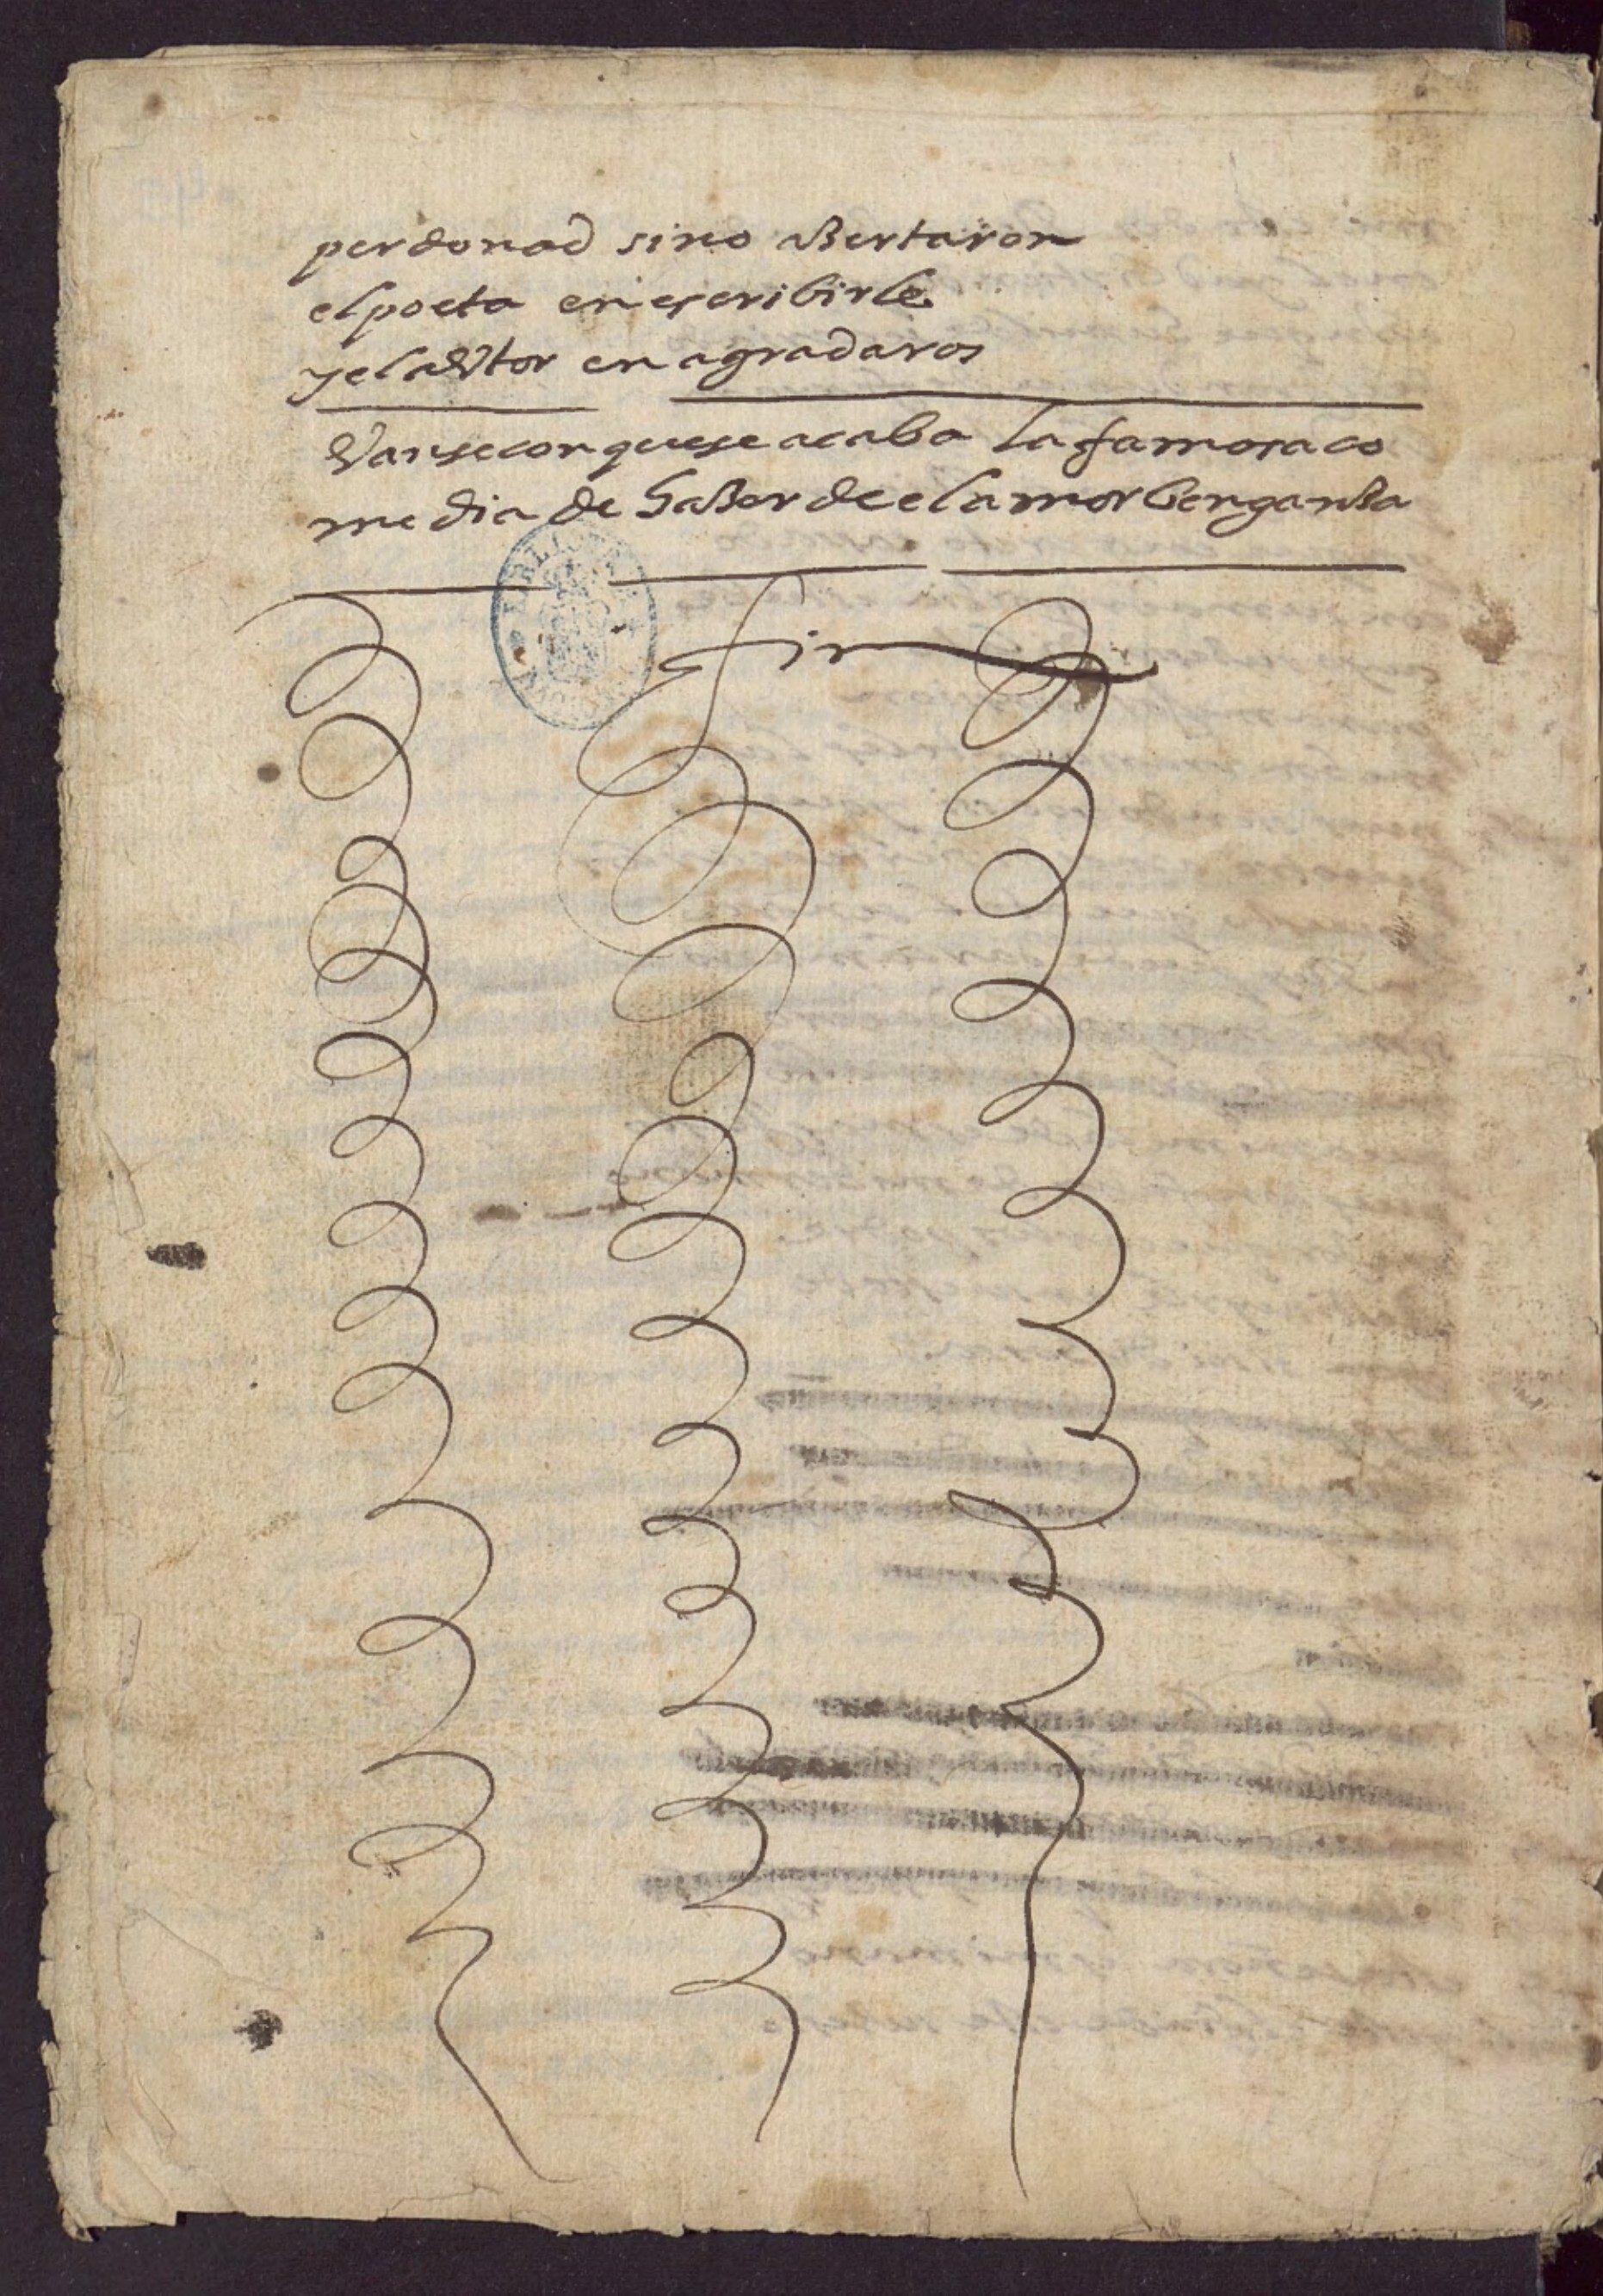 perdonad sino aZertaron
el poeta en escribirle
y el avtor en agradaros
Vanse con que se acaba la famosa co
media de haZer de el amor benganZa
fin